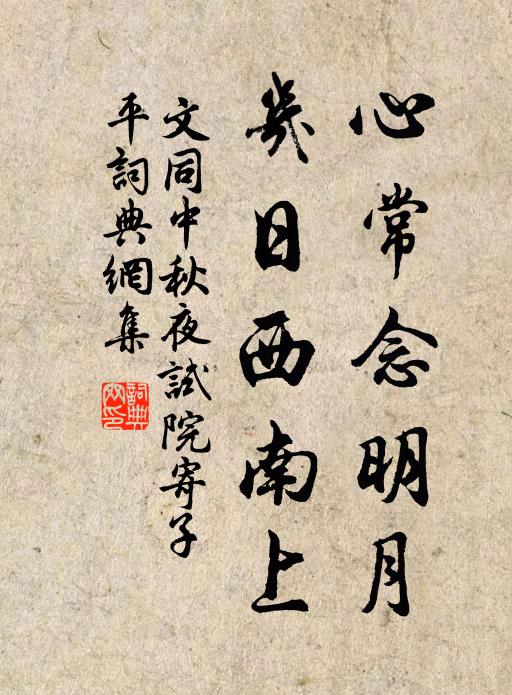 心常念明月
幾日西南上
文同中秋夜試院寄子
平詞典網集
詞典
网印